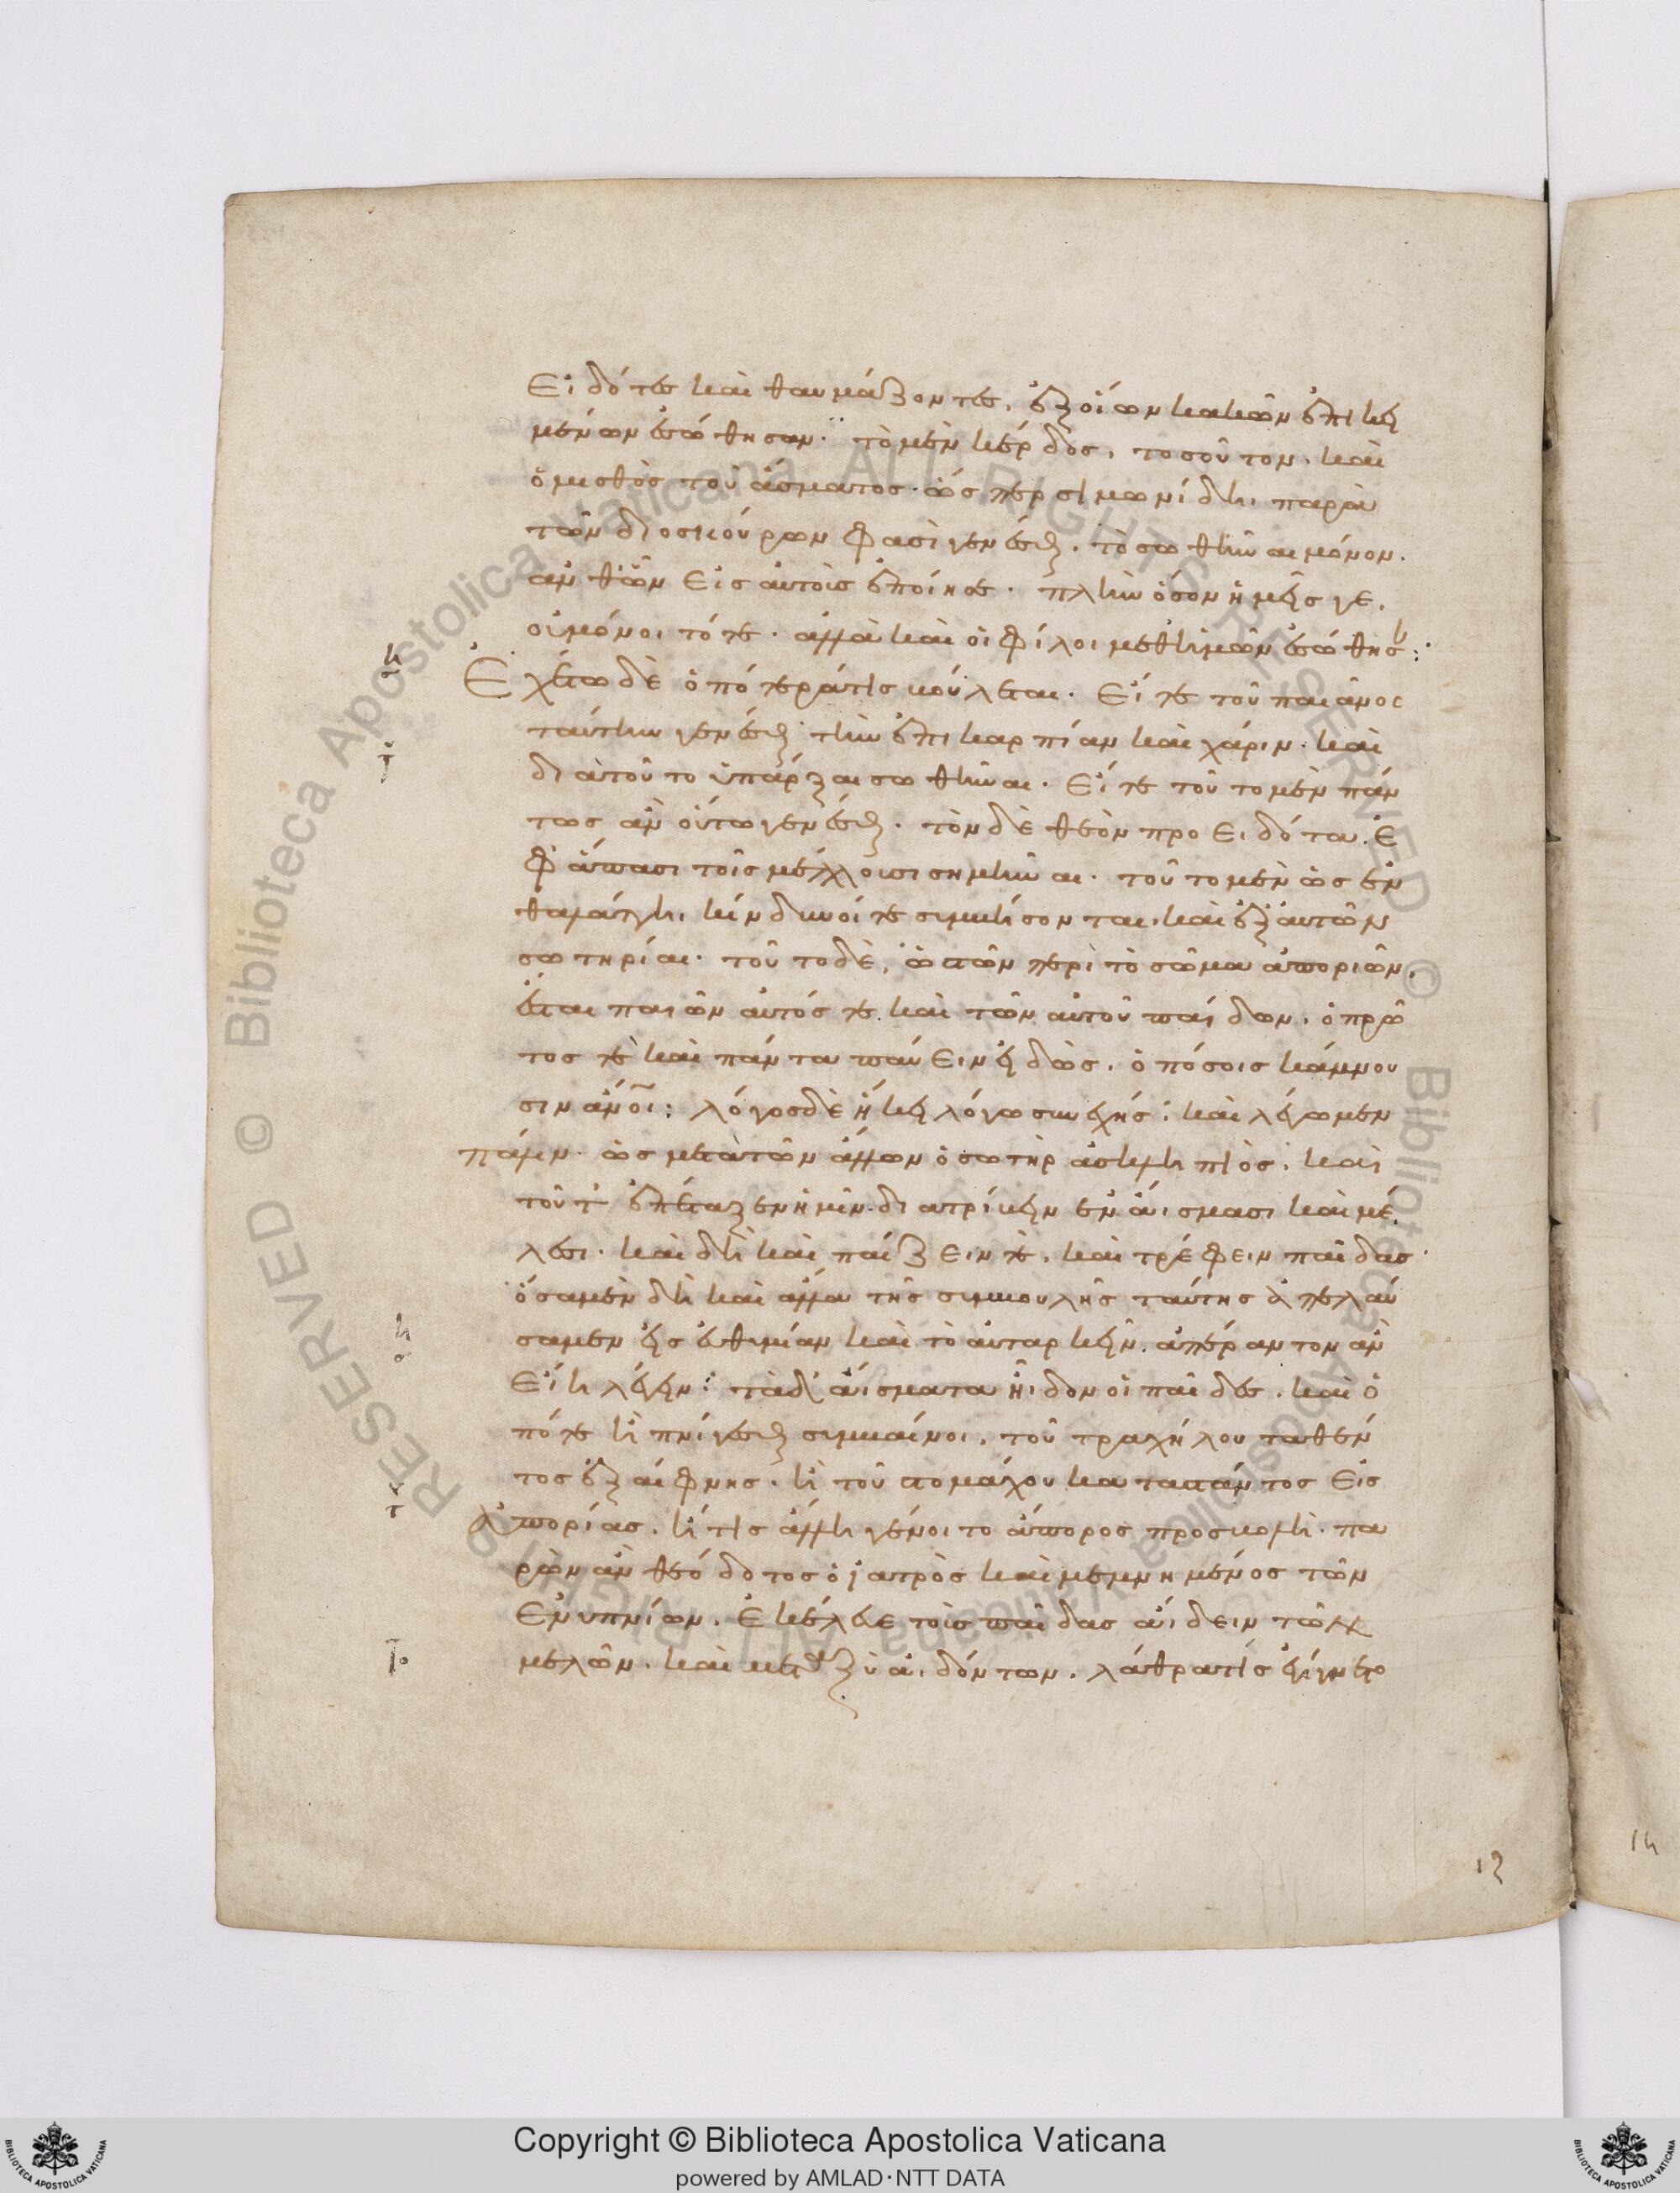 Εἰδότες καὶ θαυμάζοντες, ἐξ οἵων κακῶν ἐπικει
μένων ἐσώθησαν· τὸ μὲν κέρδος, τοσοῦτον, καὶ
ὁ μισθὸς τοῦ ἄσματος· ὥσπερ σιμωνίδηι, παρὰ
τῶν διοσκούρων φασὶ γενέσθαι. τὸ σωθῆναι μόνον.
ἀνθ' ὧν εἰς αὐτοὺς ἐποίησε· πλὴν ὅσον ἡμεῖς γε,
οὐ μόνοι τότε· ἀλλὰ καὶ οἱ φίλοι μεθ' ἡμῶν ἐσώθησ:·
Ἐχέτω δὲ ὁποτέρα τις βούλεται· Εἴτε τοῦ παιᾶνος
ταύτην γενέσθαι τὴν ἐπικαρπίαν καὶ χάριν· καὶ
διὰ τοῦτο ὑπάρξαι σωθῆναι· Εἴτε τοῦτο μὲν πάν
τως ἂν οὕτω γενέσθαι· τὸν δὲ θεὸν προειδότα. Ἐ
φ' ἅπασι τοῖς μέλλουσι σημῆναι· τοῦτο μὲν ὡς ἐν
θαλάττηι, κίνδυνοί τε συμβήσονται, καὶ ἐξ αὐτῶν
σωτηρίαι· τοῦτο δὲ, ὡς τῶν περὶ τὸ σῶμα ἀποριῶν,
ἔσται παιὼν αὐτός τε καὶ τῶν αὐτοῦ παίδων, ὁ πρῶ
τος τὲ καὶ πάντα παύειν εἰδὼς, ὁπόσοις κάμνου
σιν ἄνοι: λόγος δὲ ἥκει λόγω συνεχής: καὶ λέγωμεν
πάλιν· ὡς μετὰ τῶν ἄλλων ὁ σωτὴρ ἀσκληπιὸς· καὶ
τοῦτ' ἐπέταξεν ἡμῖν· διατρίβειν ἐν ἄισμασι καὶ μέ
λεσι· καὶ δὴ καὶ παίζειν τὲ, καὶ τρέφειν παῖδας·
ὅσα μὲν δὴ καὶ ἄλλα τῆς συμβουλῆς ταύτης ἀπελαύ
σαμεν εἰς εὐθυμίαν καὶ τὸ αὐταρκεῖν. ἀπέραντον ἂν
Εἴη λέγειν: τὰ δ' ἄισματα ἦιδον οἱ παῖδες, καὶ ὁ
πότε ἢ πνίγεσθαι συμβαίνοι, τοῦ τραχήλου ταθέν
τος ἐξαίφνης· ἢ τοῦ στομάχου καταστάντος εἰς
ἀπορίας, ἤ τις ἄλλη γένοιτο ἄπορος προσβολὴ· πα
ρὼν ἂν θεόδοτος ὁ ἰατρὸς καὶ μεμνημένος τῶν
Ἐνυπνίων, Ἐκέλευε τοὺς παῖδας ἄιδειν τῶν
μελῶν, καὶ μεταξὺ ἀιδόντων, λάθρα τίς ἐγίγνετο
13
14